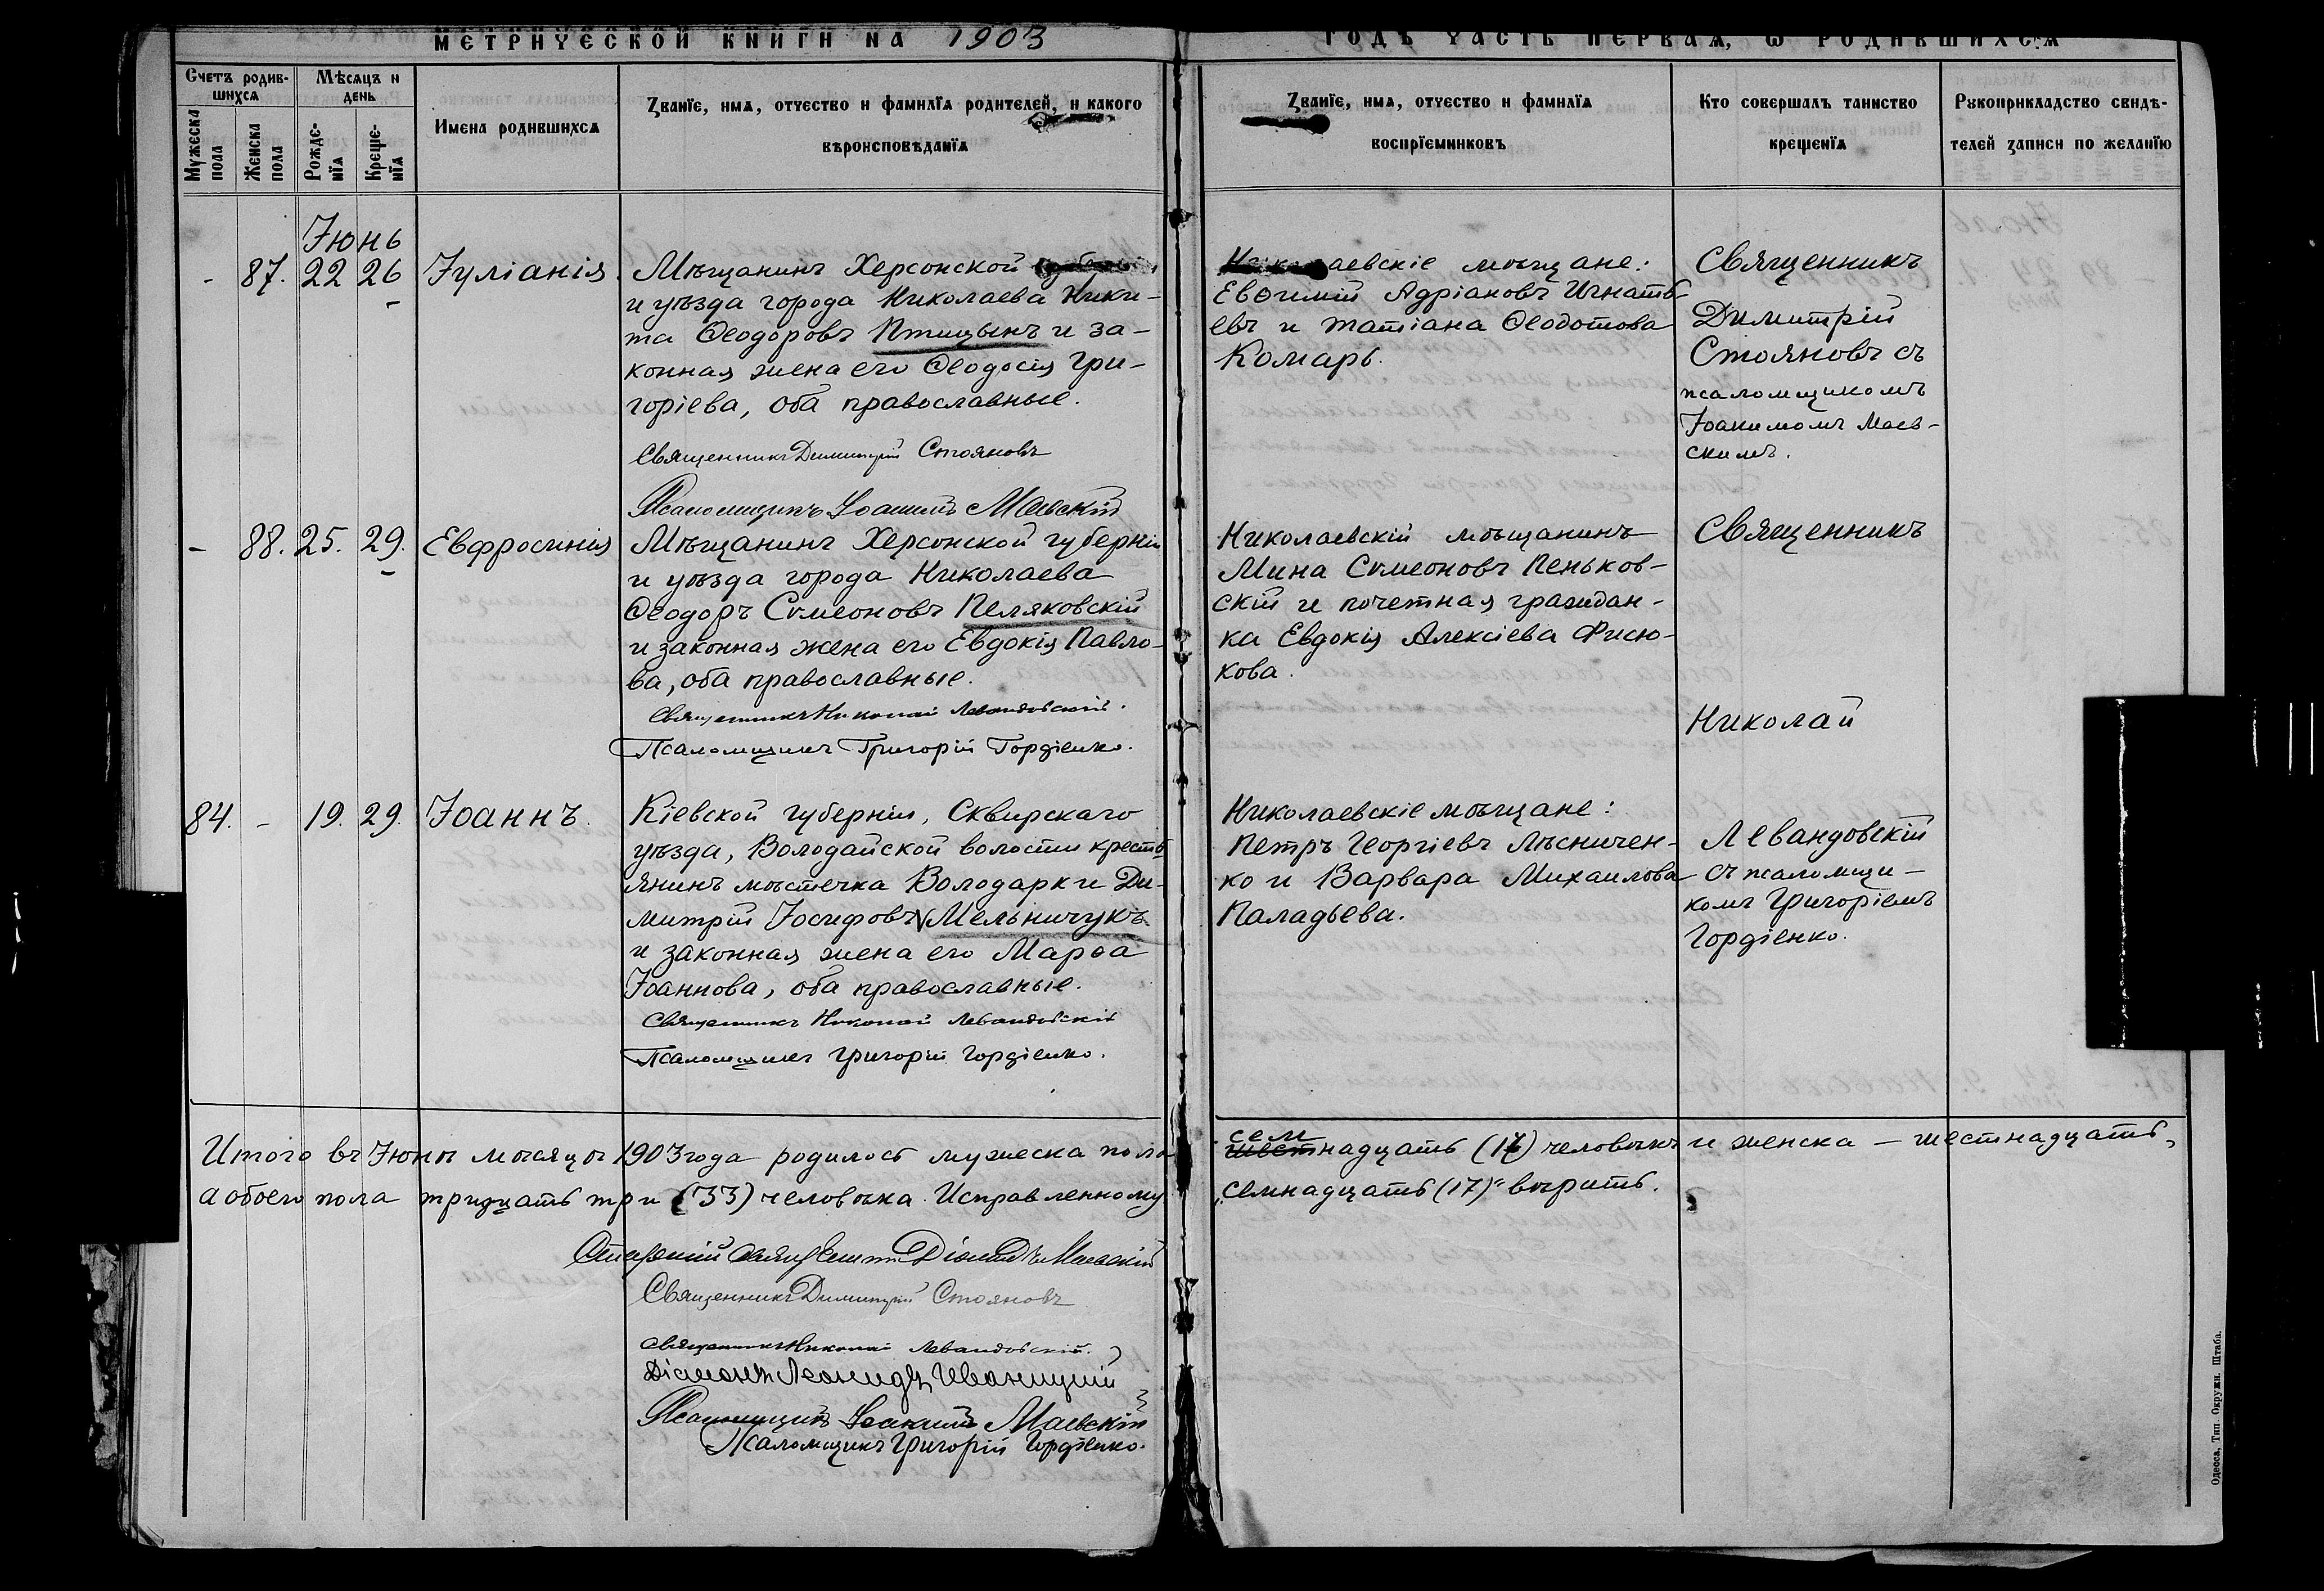 МЕТРИЧЕСКОЙ КНИГИ НА 1903
ГОДЪ ЧАСТЬ ПЕРВАЯ, Ѡ РОДИВШИХСЯ
Счетъ родив-
шихся
Мѣсяцъ и
день
Мужеска
пола
Женска
пола
Рожде-
нїя
Креще-
нїя
Имена родившихся
Званїе, имя, отчество и фамилїя родителей, и какого
вѣроисповѣданїя
Званїе, имя, отчество и фамилїя
воспрїемниковъ
Кто совершалъ таинство
крещенїя
Рукоприкладство свидѣ-
телей записи по желанїю
Іюнь
- 87. 22 26 Іуліанія.
Мѣщанинъ Херсонской губерніи,
и уѣзда города Николаева Ники-
та Ѳеодоровъ Птицынъ и за-
конная жена его Ѳеодосія Гри-
горіева, оба православные.
Священникъ Димитрій Стояновъ
Псаломщикъ Іоакимъ Маевскій
Николаевскіе мѣщане:
Евѳимій Адріановъ Игнать-
евъ и Татіана Ѳеодотова
Комарь.
Священникъ
Димитрій
Стояновъ съ
псаломщикомъ
Іоакимомъ Маев-
скимъ.
- 88. 25. 29. Евфросинія
Мѣщанинъ Херсонской губерніи
и уѣзда города Николаева
Ѳеодоръ Сѵмеоновъ Пеляковскій
и законная жена его Евдокія Павло-
ва, оба православные.
Священникъ Николай Левандовскій.
Псаломщикъ Григорій Гордіенко.
Николаевскій мѣщанинъ
Мина Сѵмеоновъ Пеньков-
скій и почетная граждан-
ка Евдокія Алексіева Фисю-
кова.
Священникъ
Николай
84. - 19. 29. Іоаннъ.
Кіевской губерніи, Сквирскаго
уѣзда, Володайской волости кресть-
янинъ мѣстечка Володарки Ди-
митрій Іосифовъ Мельничукъ
и законная жена его Марѳа
Іоаннова, оба православные.
Священникъ Николай Левандовскій
Псаломщикъ Григорій Гордіенко.
Николаевскіе мѣщане:
Петръ Георгіевъ Лѣсничен-
ко и Варвара Михаилова
Паладьева.
Левандовскій
съ псаломщи-
комъ Григоріемъ
Гордіенко.
Итого въ Іюнѣ мѣсяцѣ 1903 года родилось мужеска пола
сем
шестнадцать (17) человѣкъ и женска - шестнадцать,
а обоего пола тридцать три (33) человѣка. Исправленному
"семнадцать (17)" вѣрить.
Священникъ Димитрій Стояновъ
Священникъ Николай Левандовскій.
Діаконъ Леонидъ Иваницкій
Псаломщикъ Іоакимъ Маевскій
Псаломщикъ Григорій Гордіенко.
Одесса, Тип. Окружн. Штаба.